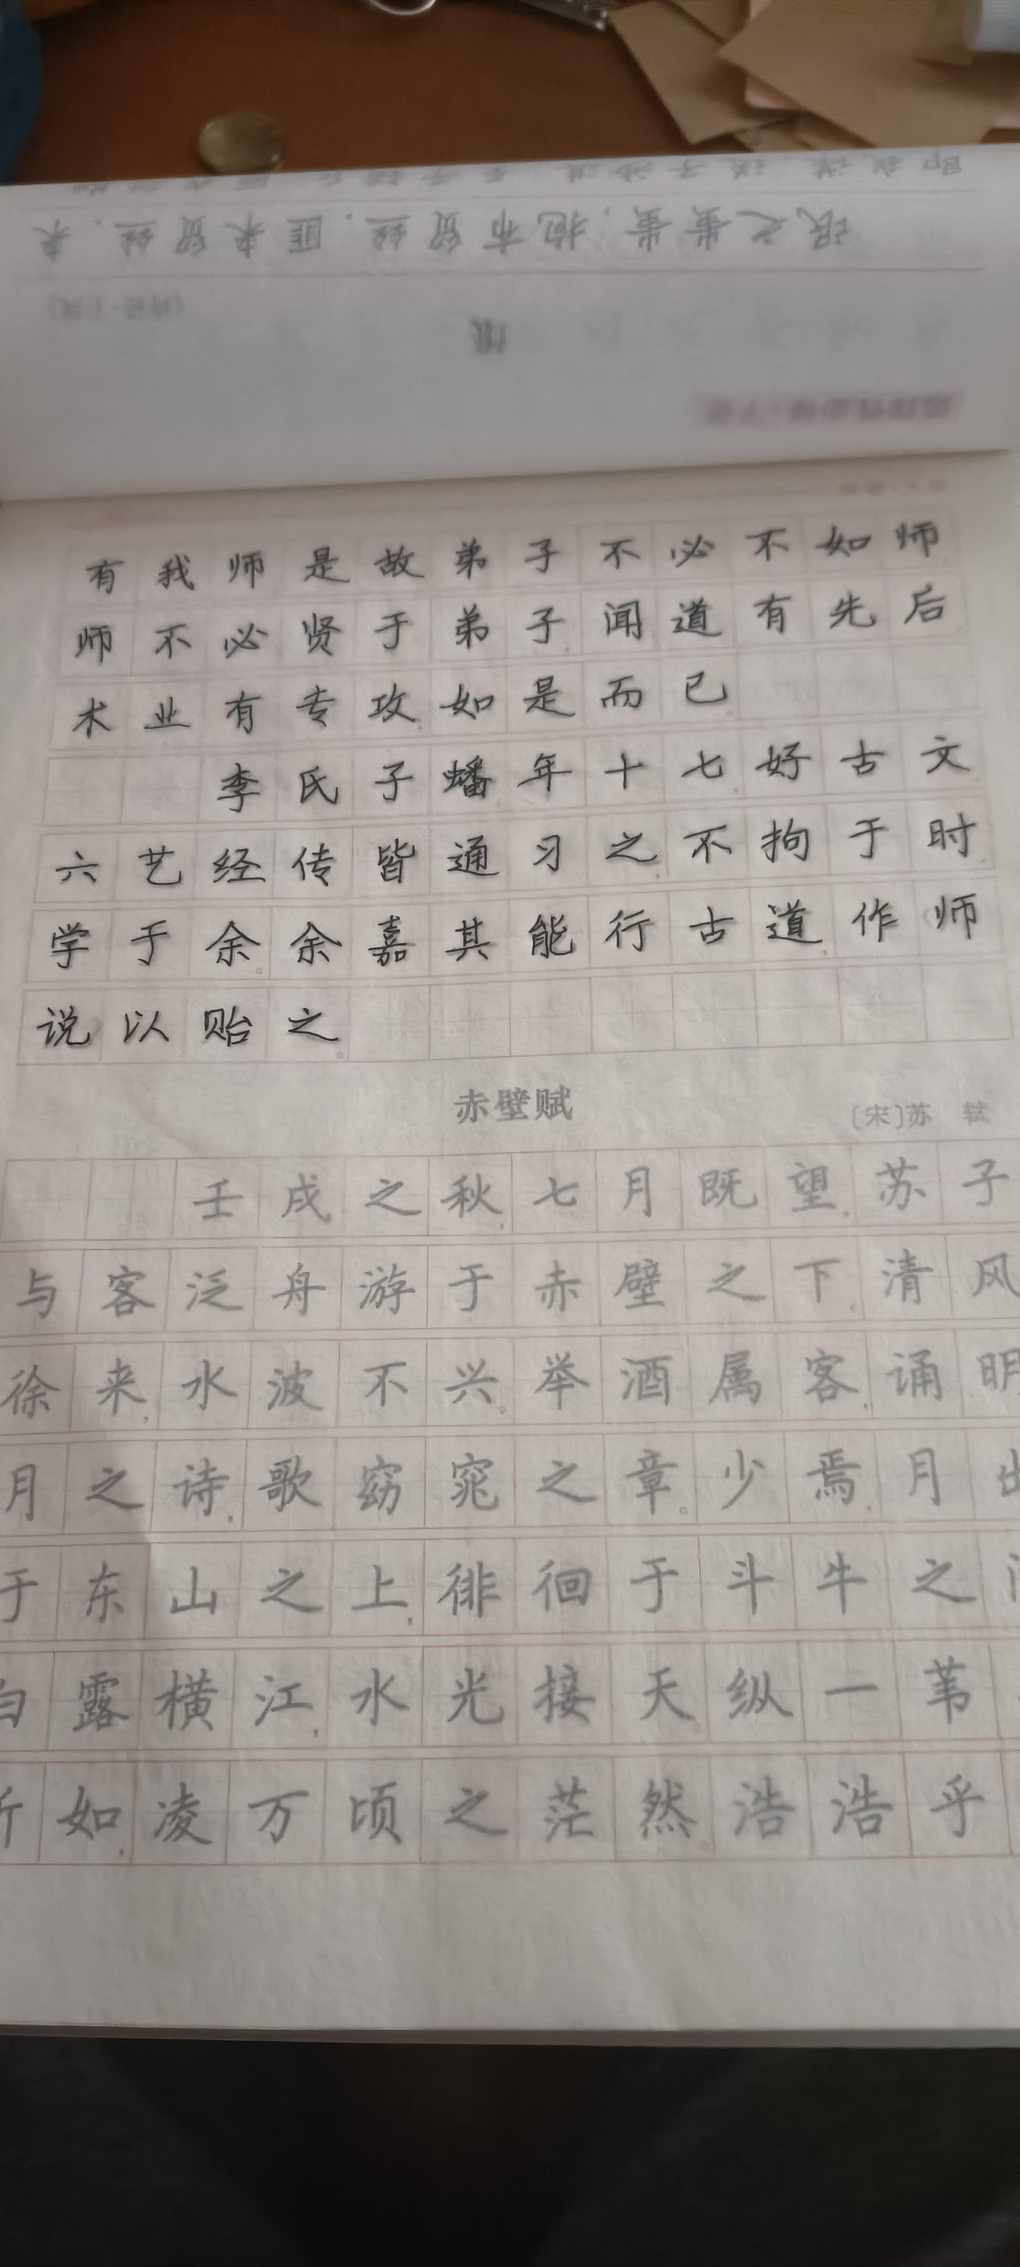 氓之蚩蚩，抱布贸丝．匪来贸丝，来
氓
有我师是故弟子不必不如师
师不必贤于弟子闻道有先后
术业有专攻如是而已。
李氏子蟠年十七好古文
六艺经传皆通习之不拘于时
学于余。余嘉其能行古道作师
说以贻之。
赤壁赋
〔宋〕苏 轼
壬戌之秋，七月既望，苏子
与客泛舟游于赤壁之下。清风
徐来，水波不兴。举酒属客，诵明
月之诗，歌窈窕之章。少焉，月出
于东山之上，徘徊于斗牛之
白露横江，水光接天纵一苇
如，凌万顷之茫然。浩浩乎